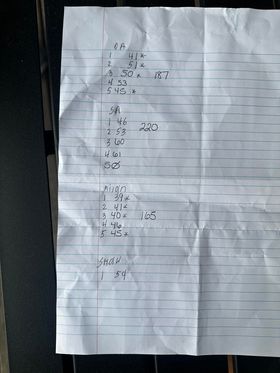 DA
1 41*
2 51*
3 50* 187
4 53
5 45*
SA
1 46
2 53 220
3 60
4 61
5 Ø
Align
1 39*
2 41*
3 40* 165
4 46
5 45*
Show
1 54